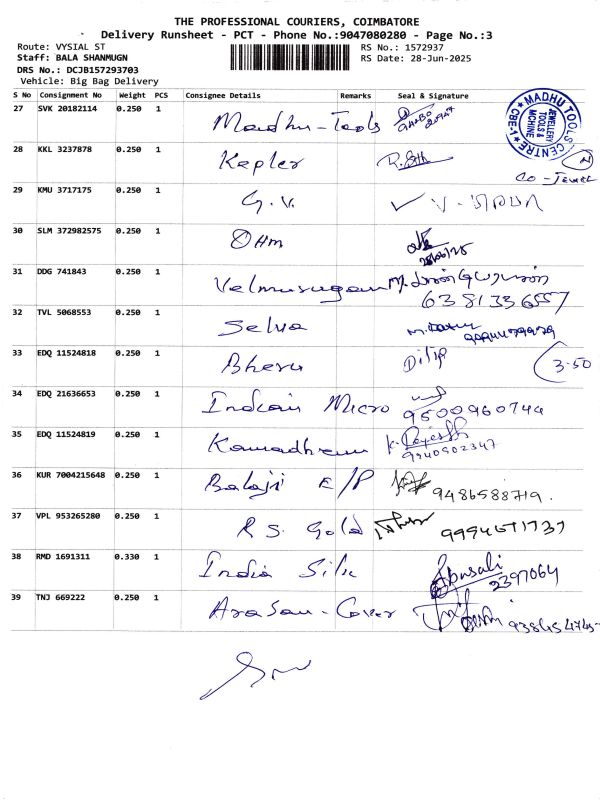 THE PROFESSIONAL COURIERS, COIMBATORE
Delivery Runsheet - PCT - Phone No.:9047080280 - Page No.:3
Route: VYSIAL ST RS No.: 1572937
Staff: BALA SHANMUGN RS Date: 28-Jun-2025
DRS No.: DCJB157293703
Vehicle: Big Bag Delivery
S No Consignment No Weight PCS Consignee Details Remarks Seal & Signature
27 SVK 20182114 0.250 1 Madhu-Tools
MADHU TOOLS CENTRE
CBE-1
JEWELLERY
TOOLS &
MACHINE
28 KKL 3237878 0.250 1 Kepler
CO-Jewel
29 KMU 3717175 0.250 1 G.V.
30 SLM 372982575 0.250 1 Ohm
31 DDG 741843 0.250 1 Velmurugan
6381336557
32 TVL 5068553 0.250 1 Selva
33 EDQ 11524818 0.250 1 Bheru Dilip 3.50
34 EDQ 21636653 0.250 1 Indian Micro 9500960744
35 EDQ 11524819 0.250 1 K. Rajesh
9940902347
36 KUR 7004215648 0.250 1 Balaji E/P 9486588719.
37 VPL 953265280 0.250 1 R S. Gold
38 RMD 1691311 0.330 1 India Silk
2397064
39 TNJ 669222 0.250 1 Arasan-Cover